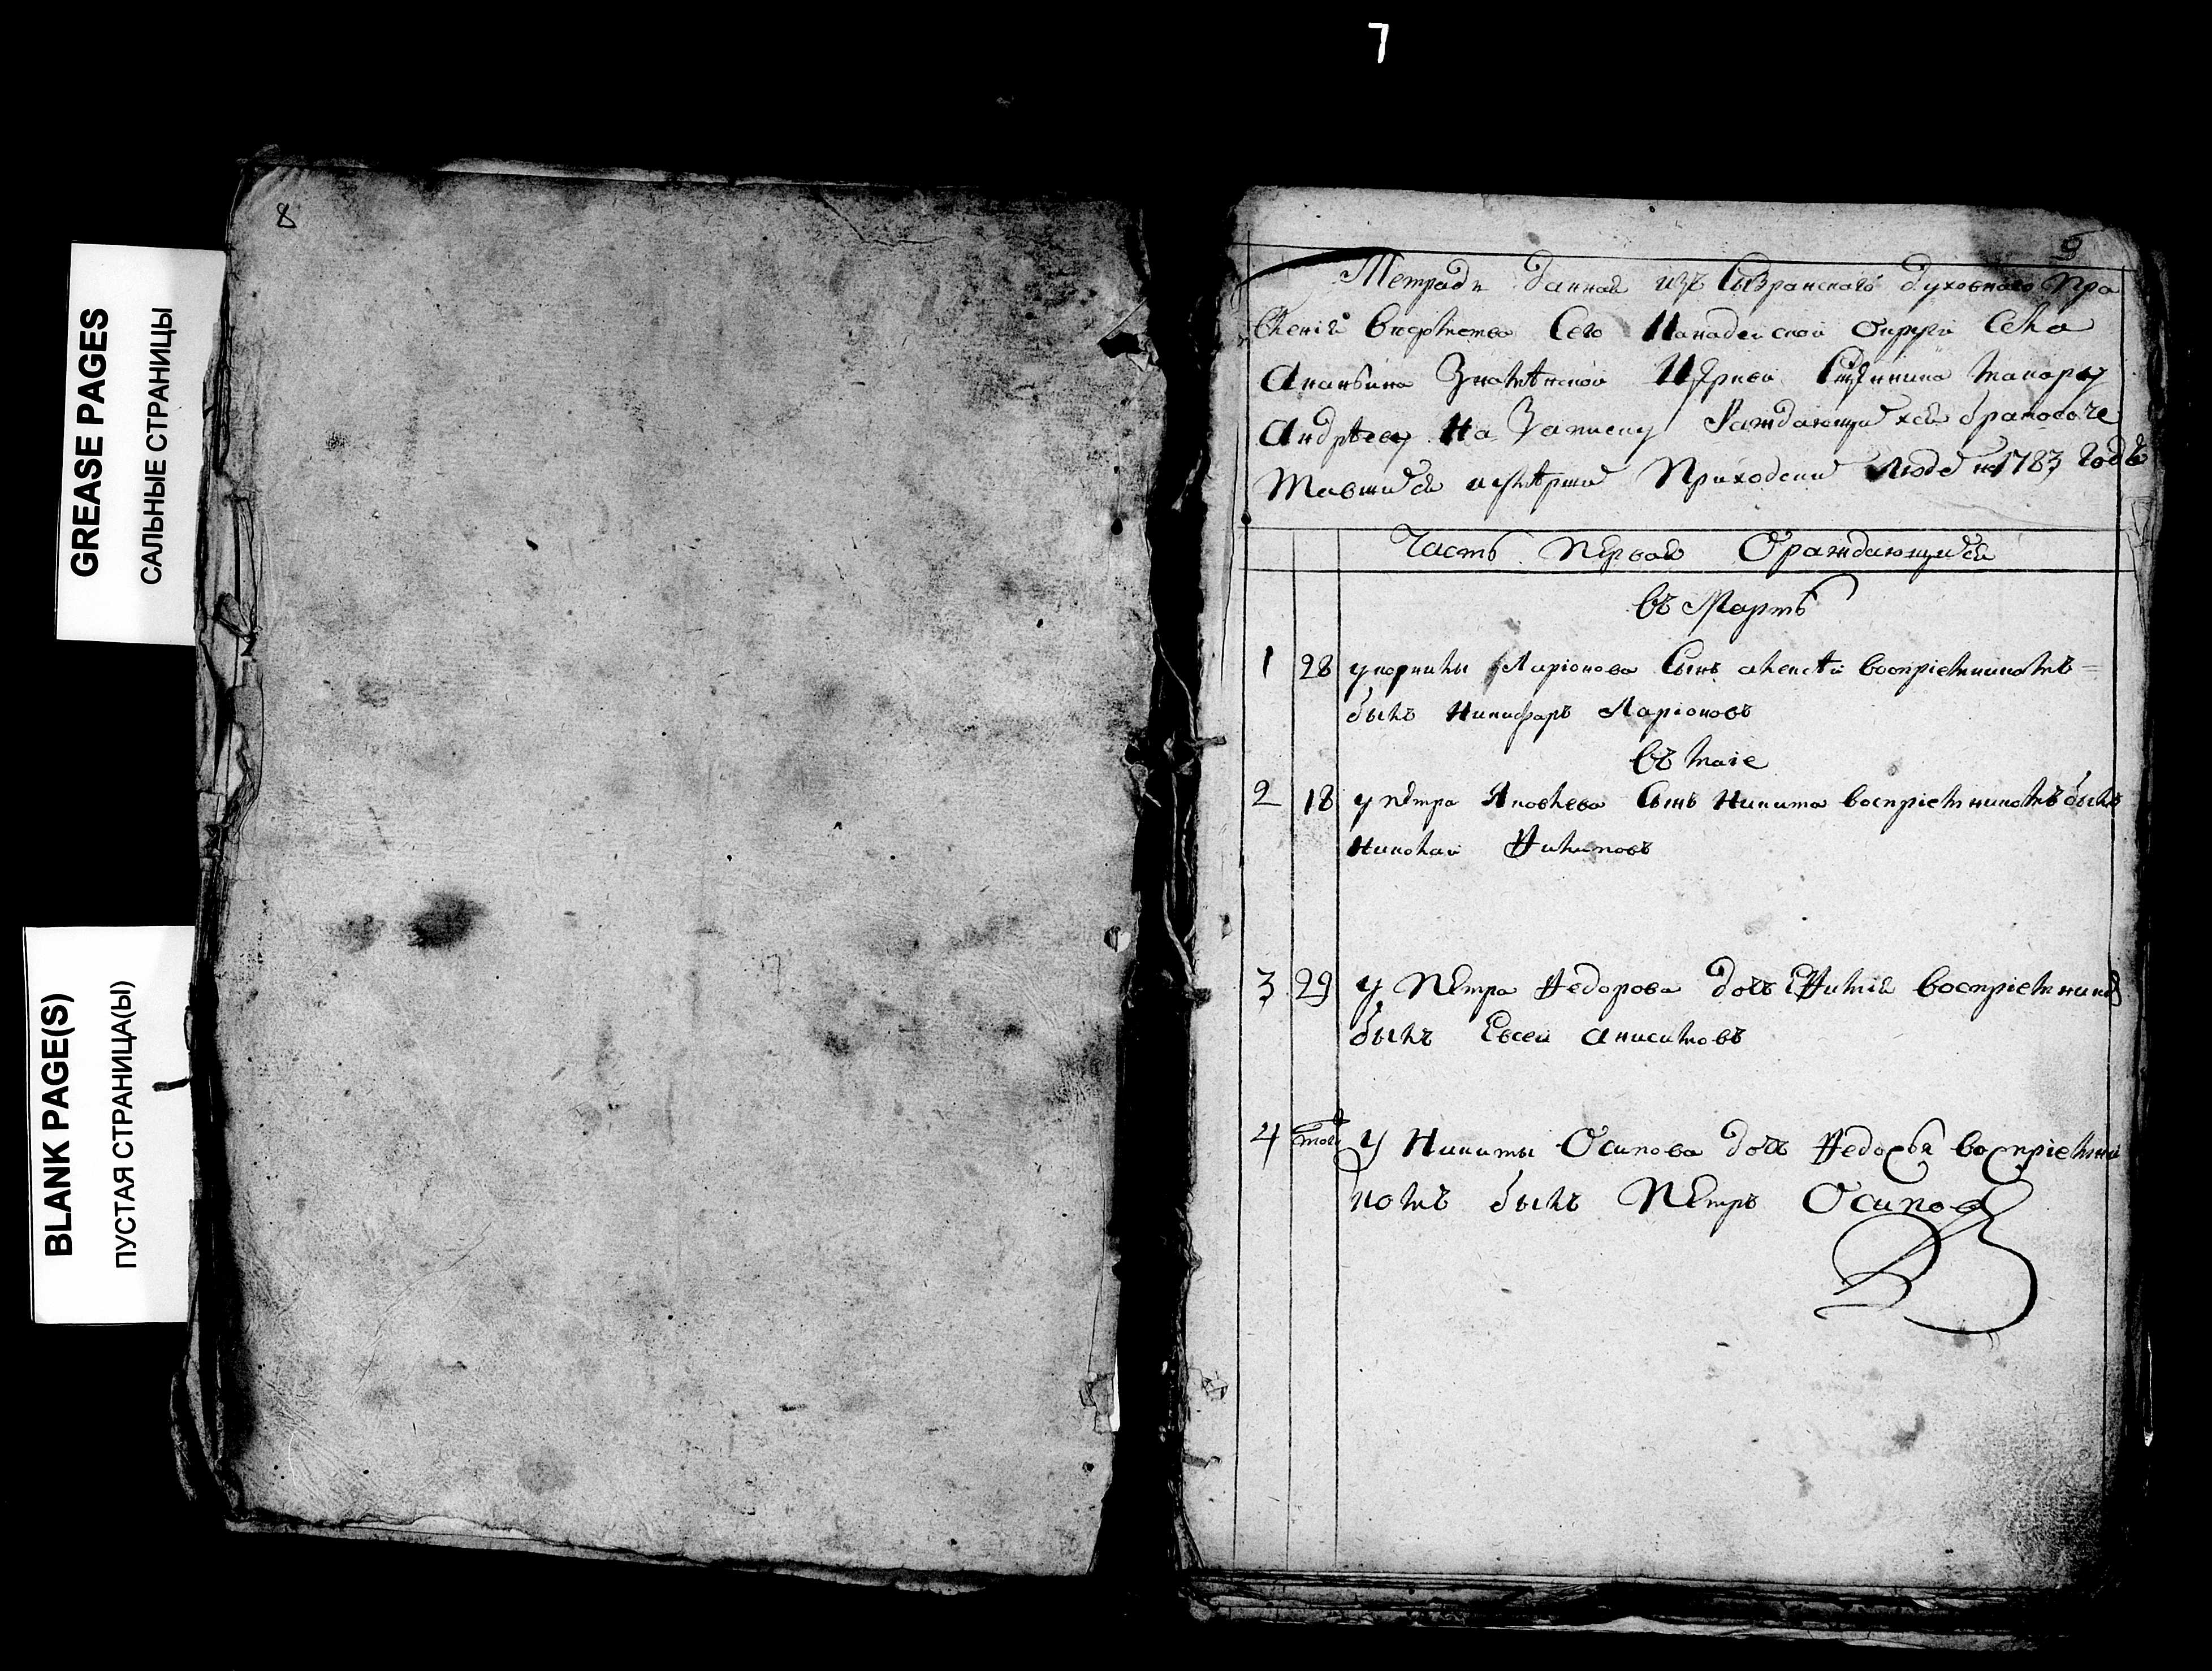 7
GREASE PAGES
САЛЬНЫЕ СТРАНИЦЫ
BLANK PAGE(S)
ПУСТАЯ СТРАНИЦА(Ы)
8
9
Тетрадь данная изъ Сызранского духовного Пра
вления ведомства Сего Канадейской округи Села
Ананьина Знаменской Церкви Священнику Макару
Андрѣеву На Записку Раждающихся бракосоче
тавшихся умѣрших Приходских Людей 1783 Годъ
Часть Первая О раждающихся
въ Мартѣ
1 28 у корнилы Ларіонова Сынъ алексѣй восприемникомъ
былъ Никифаръ Ларіоновъ
въ маіе
2 18 у петра Яковлева Сынъ Никита восприемникомъ былъ
Николай Филиповъ
3 29 у Петра Федорова дочь Ефимия восприемник
былъ Евсей анисимовъ
4 того у Никиты Осипова дочь Федосья восприемни
комъ былъ Петръ Осиповъ